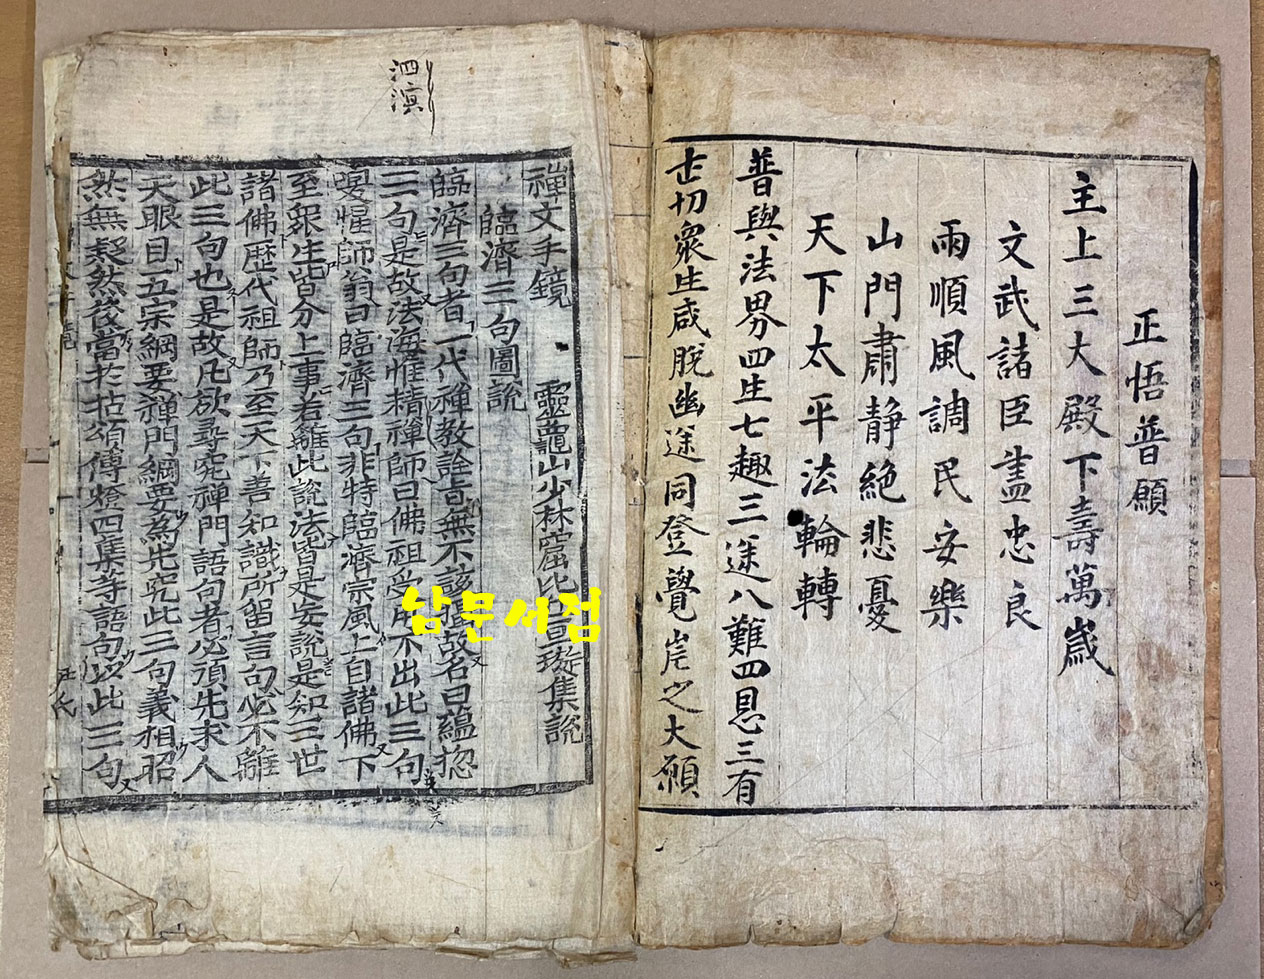 正悟普願
主上三大殿下壽萬歲
文武諸臣盡忠良
雨順風調民安樂
山門肅静絶悲憂
天下太平法輪轉
普與法界四生七趣三途八難四恩三有
切衆生咸脫幽途同登覺岸之大願
禪文手鏡 靈龜山少林窟比丘亘璇集說
臨濟三句圖說
臨濟三句者一代禪教詮旨無不該攝故名曰蘊捴
三句是故法海惟精禪師曰佛祖受用不出此三句
喚惺師翁曰臨濟三句非特臨濟宗風上自諸佛下
至衆生皆分上事若離此說法皆是妄說是知三世
諸佛歷代祖師乃至天下善知識所留言句必不離
此三句也是故凡欲尋究禪門語句者必須先求人
天眼目五宗綱要禪門綱要為先究此三句義相昭
然無疑然後當扵拈頌傳燈四集等語句以此三句
남문서점